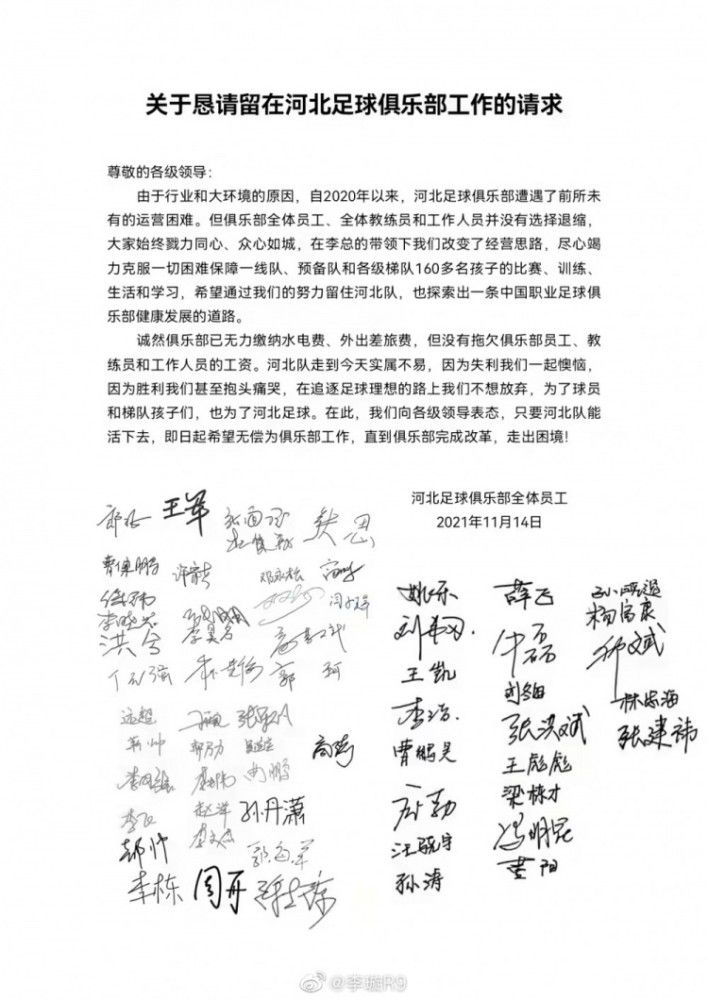 关于恳请留在河北足球俱乐部工作的请求
尊敬的各级领导：
由于行业和大环境的原因，自2020年以来，河北足球俱乐部遭遇了前所未
有的运营困难。但俱乐部全体员工、全体教练员和工作人员并没有选择退缩，
大家始终戮力同心、众心如城，在李总的带领下我们改变了经营思路，尽心竭
力克服一切困难保障一线队、预备队和各级梯队160多名孩子的比赛、训练、
生活和学习，希望通过我们的努力留住河北队，也探索出一条中国职业足球俱
乐部健康发展的道路。
诚然俱乐部已无力缴纳水电费、外出差旅费，但没有拖欠俱乐部员工、教
练员和工作人员的工资。河北队走到今天实属不易，因为失利我们一起懊恼，
因为胜利我们甚至抱头痛哭，在追逐足球理想的路上我们不想放弃，为了球员
和梯队孩子们，也为了河北足球。在此，我们向各级领导表态，只要河北队能
活下去，即日起希望无偿为俱乐部工作，直到俱乐部完成改革，走出困境！
河北足球俱乐部全体员工
2021年11月14日
王军
曹保鹏
洪兮
郭珂
远超
孙丹潇
李栋
周冉
姚乐
王凯
李浩
曹鹏昊
孙涛
薛飞
牛磊
张洪斌
王彪彪
梁栋才
冯明昆
杨富康
林志海
张建祎
@李璇R9